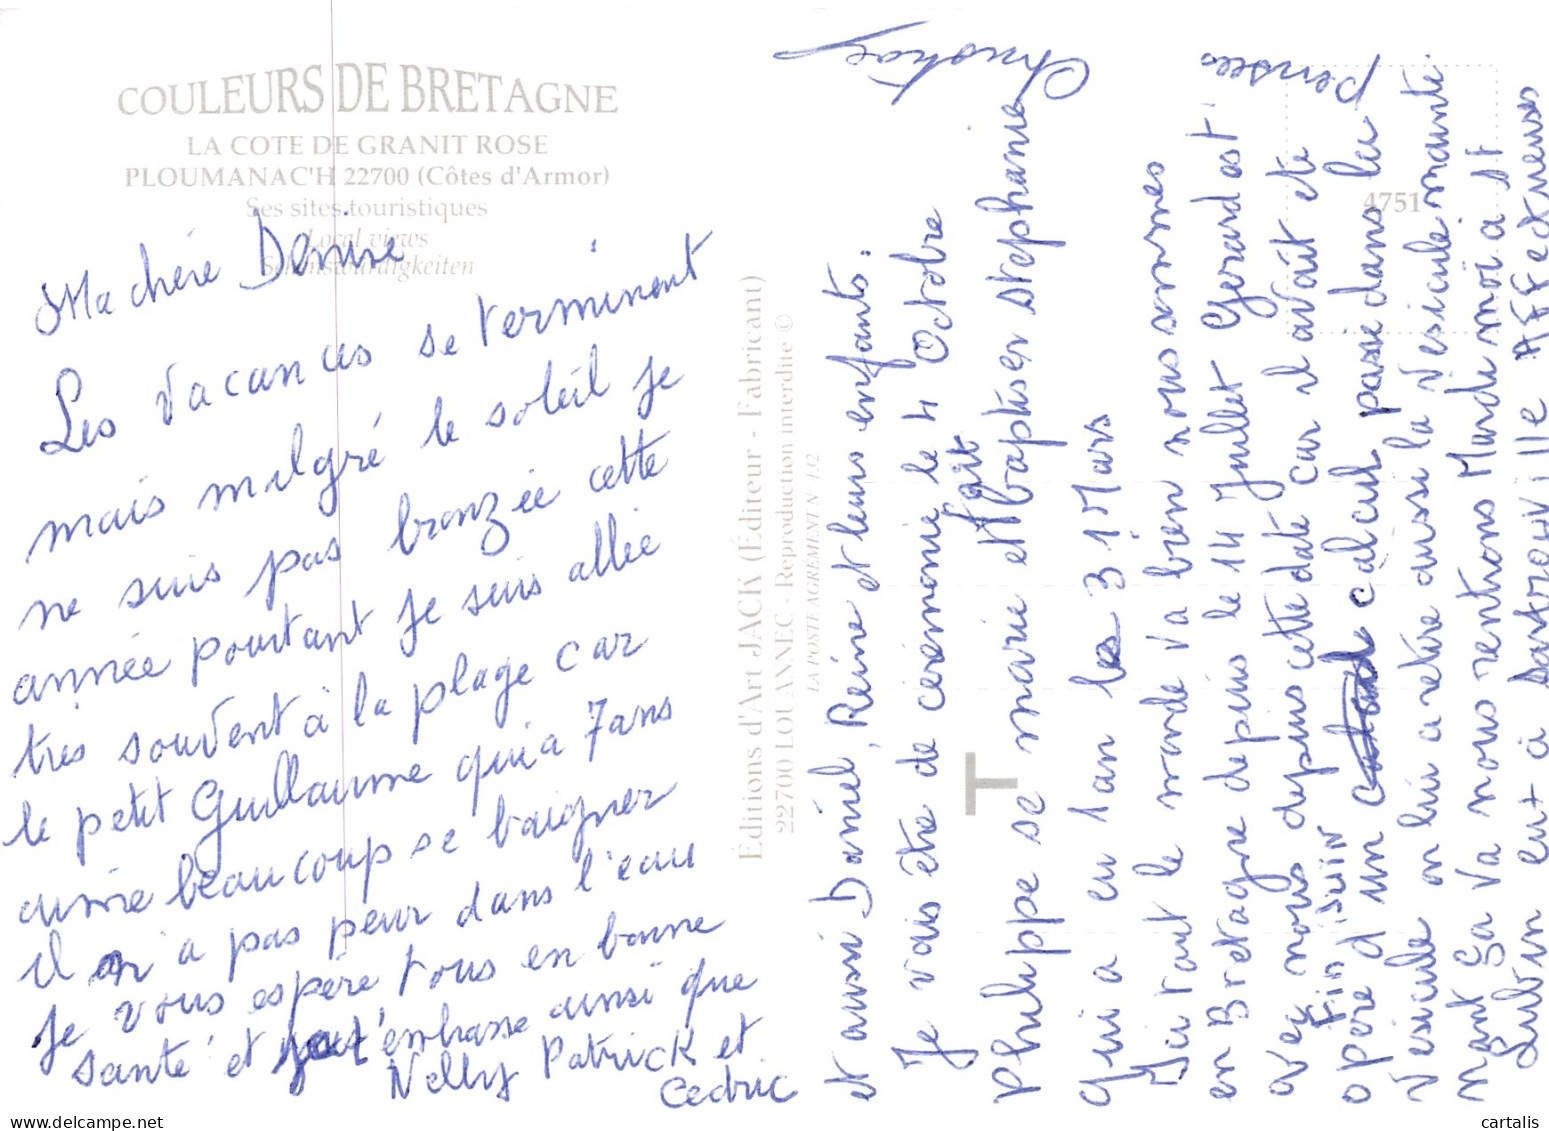 COULEURS DE BRETAGNE
LA COTE DE GRANIT ROSE
PLOUMANAC'H 22700 (Côtes d'Armor)
Ses sites touristiques
Local views
Sehenswürdigkeiten
Ma chére Denise
Les vacances se terminent
mais malgré le soleil je
ne suis pas bronzée cette
année pourtant je suis allée
très souvent à la plage car
le petit Guillaume qui a 7 ans
aime beaucoup se baigner
il n'a pas peur dans l'eau
Je vous espère tous en bonne
santé et t'embrasse ainsi que
Nelly Patrick et
Cedric
Éditions d'Art JACK (Éditeur - Fabricant)
22700 LOUANNEC - Reproduction interdite ©
LA POSTE AGREMENT N° 132
T
4751
et aussi Daniel, Reine et leurs enfants.
Je vais être de cérémonie le 4 Octobre
Philippe se marie et fait baptiser stephanie
qui a eu 1 an les 31 Mars
Ici tout le monde va bien nous sommes
en Bretagne depuis le 14 Juillet Gerard est
avec nous depuis cette date car il avait ete
opere fin Juin d'un calcul passe dans la
Vesicule on lui a retire aussi la vesicule mainte
nant ça va nous rentrons Mardi moi a St
Lubin eux à Sartrouville Affectueuses
pensees
Christiane
cartalis